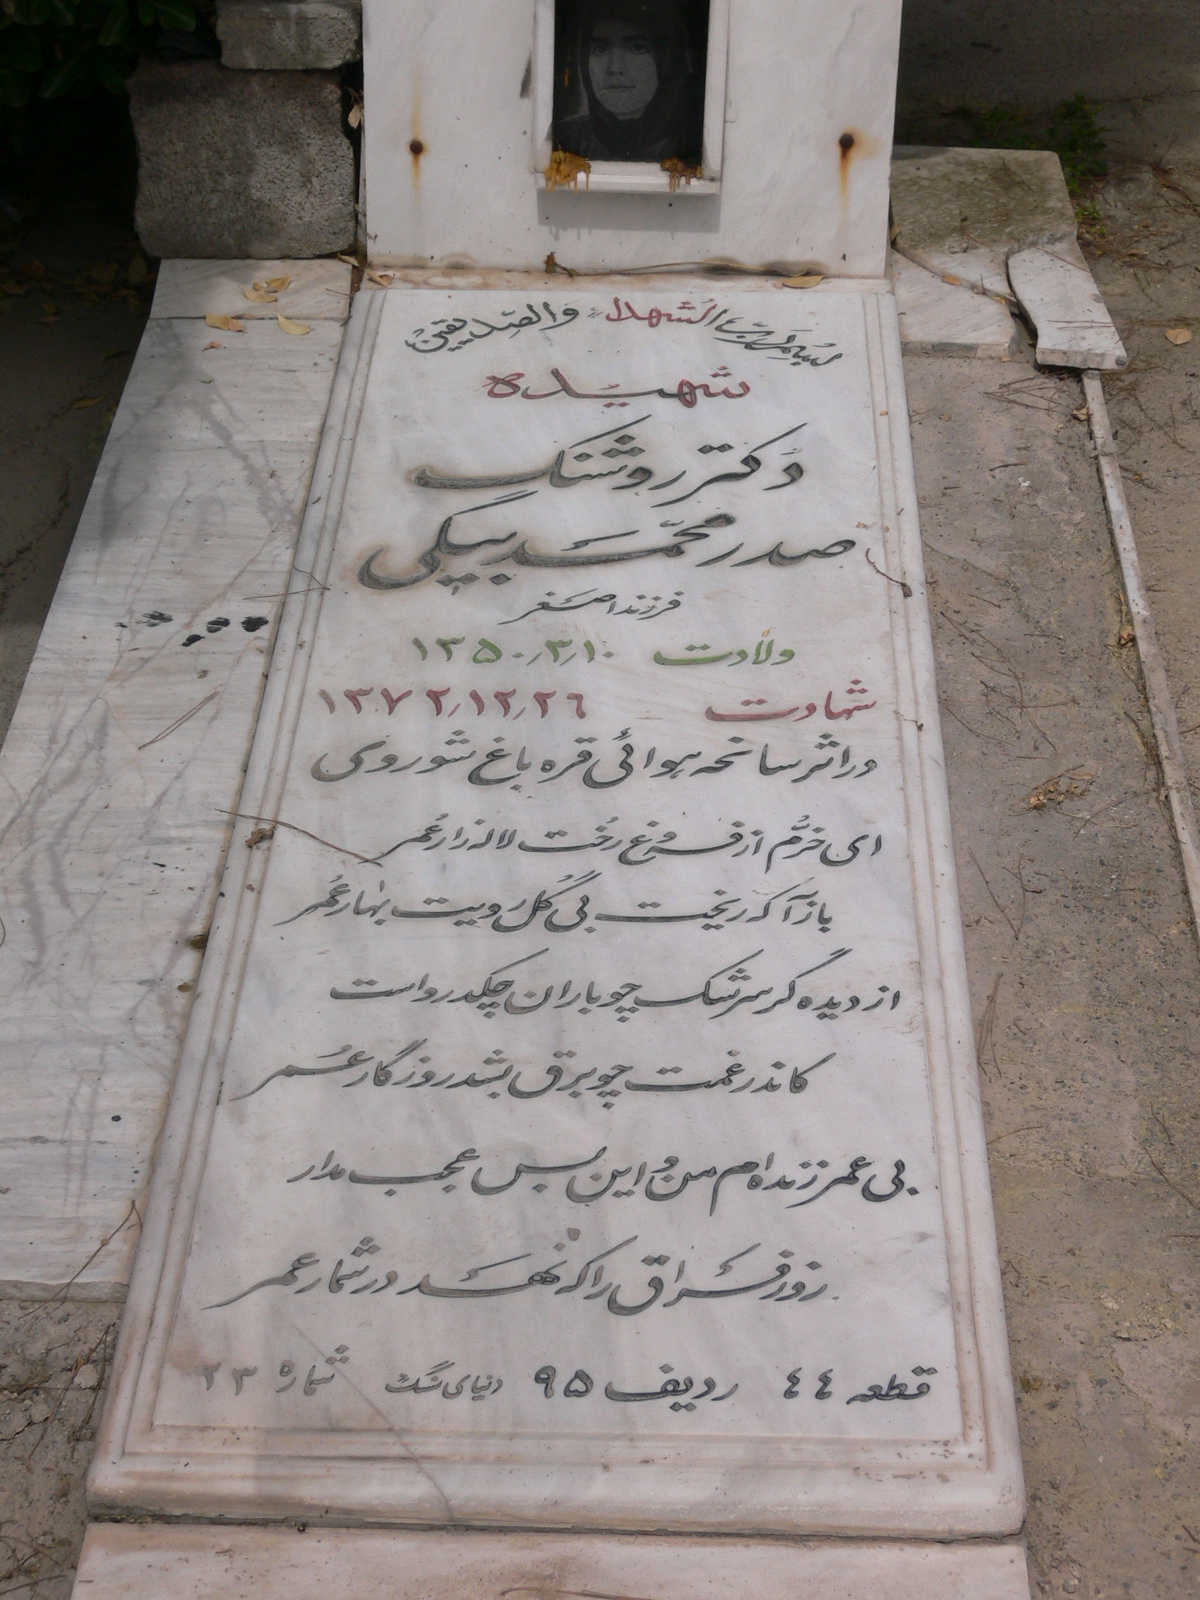 بسم رب الشهداء والصدیقین
شهیده
دکتر روشنک
صدر محمد بیگی
فرزند اصغر
ولادت ۱۳۵۰٫۳٫۱۰
شهادت ۱۳۷۲٫۱۲٫۲۶
در اثر سانحه هوائی قره باغ شوروی
ای خرُّم از فروغ رُخت لاله زار عُمر
باز آ که ریخت بی گُل رویت بهار عُمر
از دیده گر سرشک چو باران چکد رواست
کاندر غمت چو برق بشد روزگار عُمر
بی عمر زنده ام من و این بس عجب مدار
روز فراق را که نهد در شمار عمر
قطعه ٤٤ ردیف ۹۵ دنیای سنگ شماره ۲۳